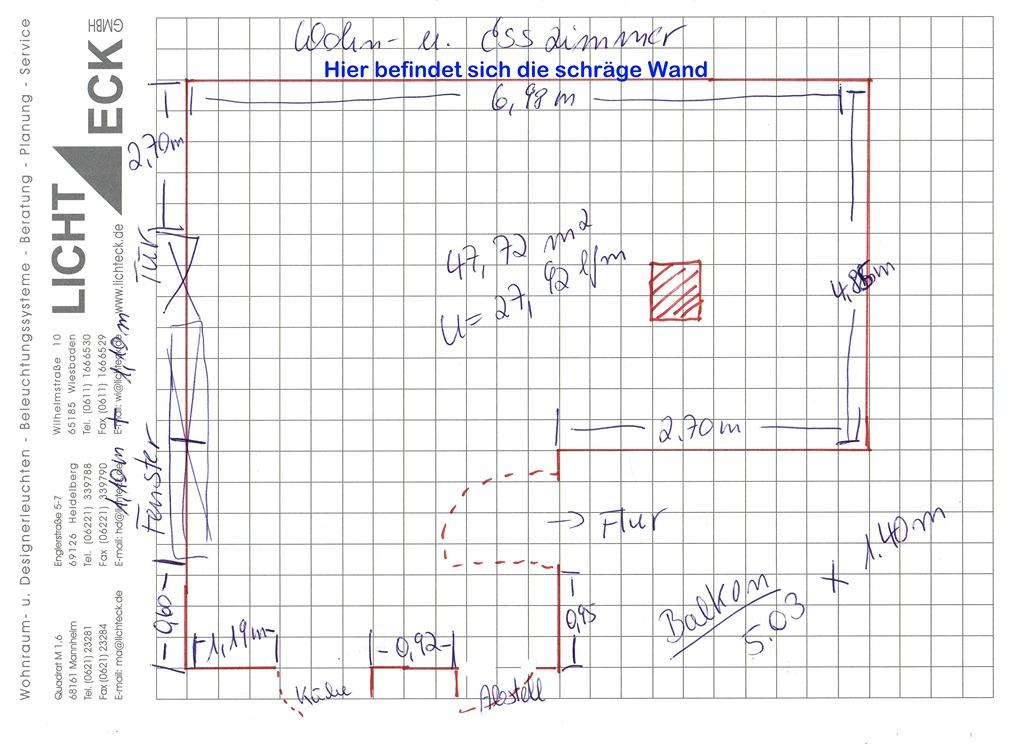 Wohn- u. Esszimmer
Hier befindet sich die schräge Wand
6,98 m
2,70m
Tür
47,72 m2
U= 27,92 lfm
4,85m
1,10m + 1,10m
Fenster
2,70m
→ Flur
0,60
1,19m
0,92
0,95
Küche
Abstell
Balkon
5.03 x 1.40m
LICHT ECK GMBH
Wohnraum- u. Designerleuchten - Beleuchtungssysteme - Beratung - Planung - Service
Wilhelmstraße 10
65185 Wiesbaden
Tel. (0611) 1666530
Fax (0611) 1666529
E-mail: wi@lichteck.de
www.lichteck.de
Englerstraße 5-7
69126 Heidelberg
Tel. (06221) 339788
Fax (06221) 339790
E-mail: hd@lichteck.de
Quadrat M 1,6
68161 Mannheim
Tel. (0621) 23281
Fax (0621) 23284
E-mail: ma@lichteck.de